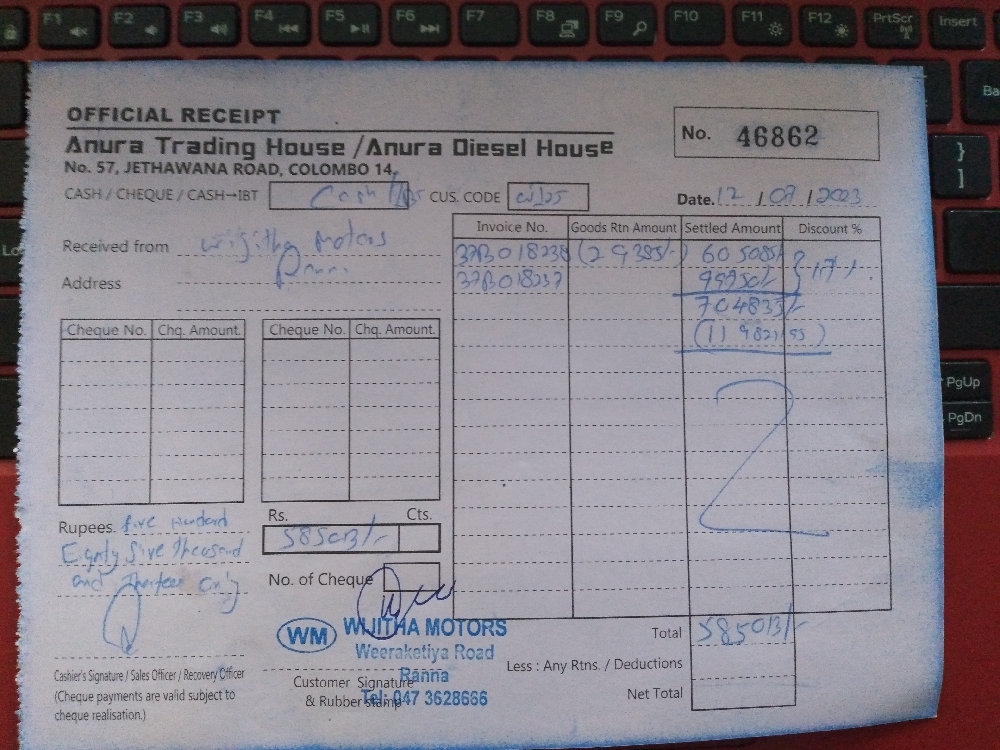 F1 F2 F3 F4 F5 F6 F7 F8 F9 F10 F11 F12 PrtScr Insert
OFFICIAL RECEIPT
Anura Trading House /Anura Diesel House
No. 57, JETHAWANA ROAD, COLOMBO 14.
No. 46862
CASH / CHEQUE / CASH→IBT Cash CUS. CODE
Date. 12 / 07 / 2023
Received from Wijitha Motors
Ranna
Address
Invoice No. Goods Rtn Amount Settled Amount Discount %
37B018238 (29385/-) 605085/-
37B018237 99750/- 17%
704835/-
Cheque No. Chq. Amount. Cheque No. Chq. Amount.
PgUp
PgDn
Rupees. five Hundred
Eighty five thousand
and Thirteen Only
Rs. Cts.
585013/-
No. of Cheque
WM WIJITHA MOTORS
Weeraketiya Road
Ranna
Tel: 047 3628666
Total 585013/-
Less : Any Rtns. / Deductions
Net Total
Cashier's Signature / Sales Officer / Recovery Officer
(Cheque payments are valid subject to
cheque realisation.)
Customer Signature
& Rubber stamp